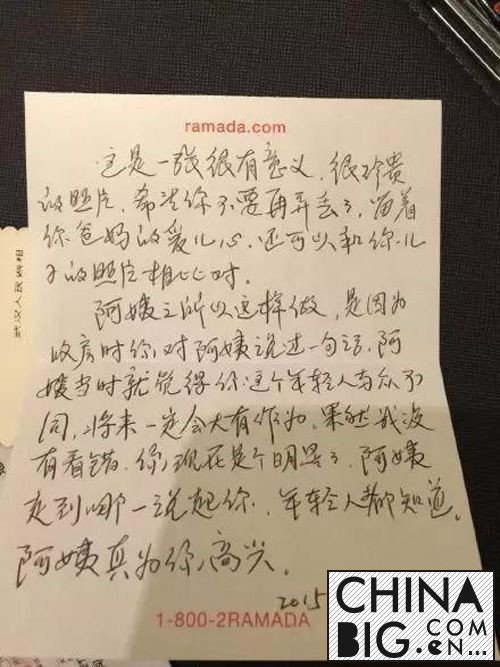 ramada.com
这是一张很有意义、很珍贵
的照片，希望你不要再弄丢了，留着
你爸妈的爱儿心，还可以和你儿
子的照片相比对。
阿姨之所以这样做，是因为
收房时你对阿姨说过一句话，阿
姨当时就觉得你这个年轻人与众不
同，将来一定会大有作为，果然我没
有看错，你现在是个明星了，阿姨
走到哪一说起你，年轻人都知道。
阿姨真为你高兴。
2015
1-800-2RAMADA
CHINA
BIG.COM
.CN...